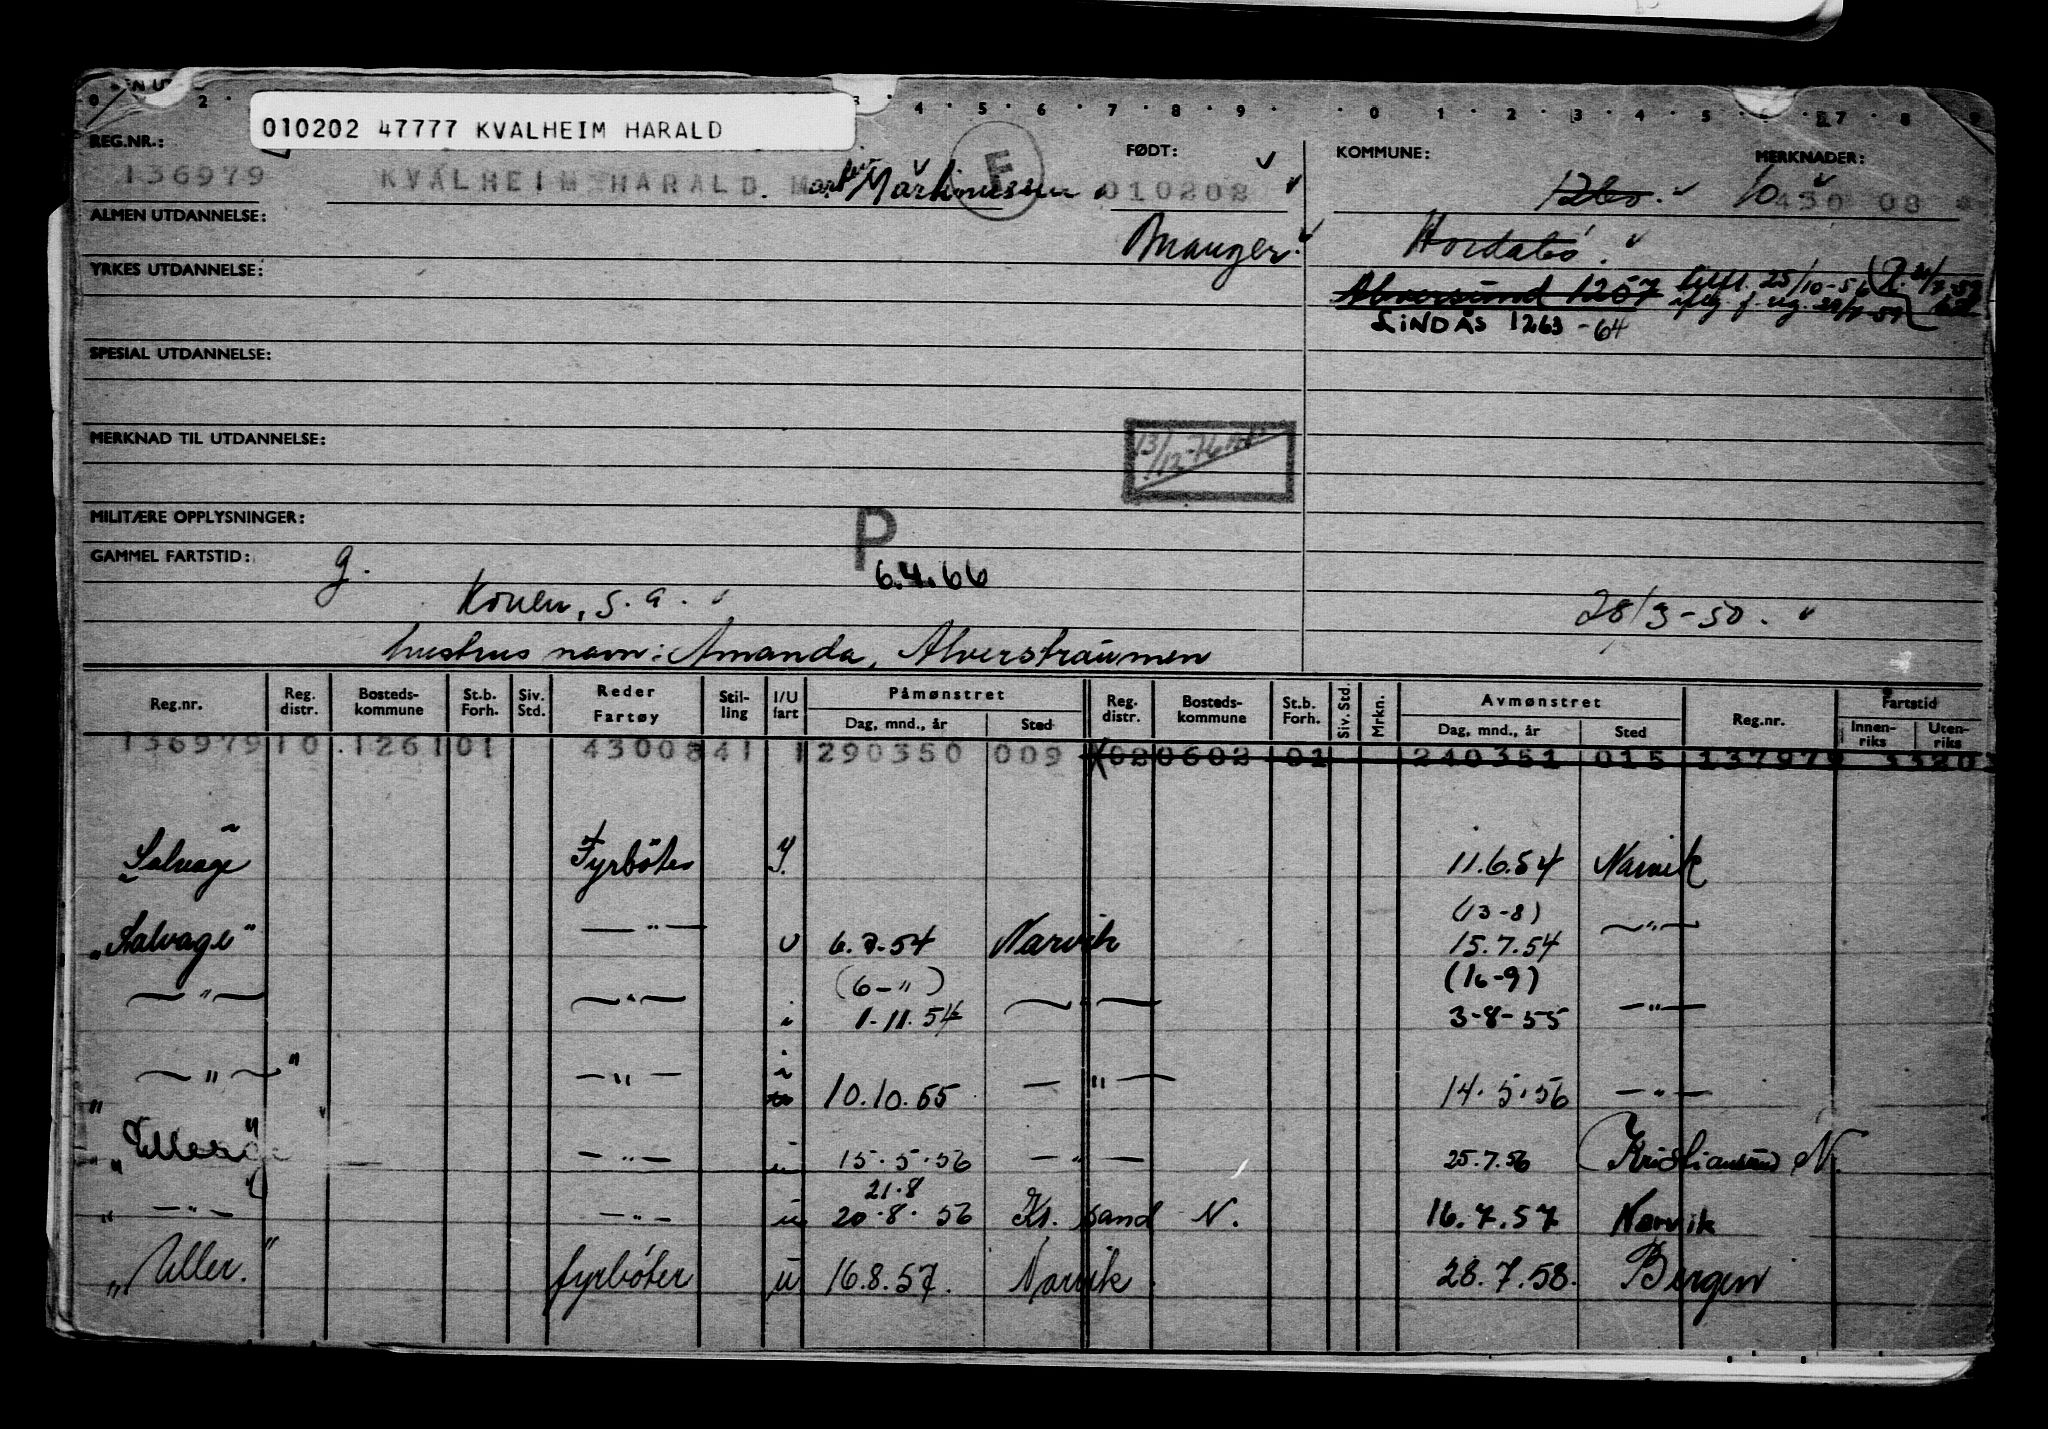 010202 47777 KVALHEIM HARALD
0 2 4 5 6 7 8 9 0 1 2 3 4 5 7 8 9
REG.NR.: FØDT: KOMMUNE: MERKNADER:
136979 KVALHEIM HARALD. Martinussen F 010202 10 430 08
ALMEN UTDANNELSE: Manger Hordabø.
YRKES UTDANNELSE: Alversund 1257 tilfl. 25/10-56
LINDÅS 1263 -64
SPESIAL UTDANNELSE:
MERKNAD TIL UTDANNELSE: 13/12-76
MILITÆRE OPPLYSNINGER: P
GAMMEL FARTSTID: g. 6.4.66
Konen, s.a. 28/3-50.
hustrus navn: Amanda, Alverstraumen
Reg.nr. Reg. distr. Bosteds-kommune St.b. Forh. Siv. Std. Reder Fartøy Stil-ling I/U fart Påmønstret Dag, mnd., år Sted Reg. distr. Bosteds-kommune St.b. Forh. Siv. Std. Mrkn. Avmønstret Dag, mnd., år Sted Reg.nr. Fartstid Innen-riks Uten-riks
136979 10 1261 01 43008 41 1 290350 009 02 0602 01 240351 015 137979 3320
Salvage Fyrbøter I. 11.6.54 Narvik
(13-8)
"Salvage" —"— U 6.7.54 Narvik 15.7.54 —"—
(6-") (16-9)
—"— —"— " 1-11.54 —"— 3-8-55 —"—
—"—" —"— 10.10.55 —"— 14.5.56 —"—
—"— u 15.5.56 —"— 25.7.56 Kristiansund N.
21.8
" —"— —"— u 20.8.56 Kr. sand N. 16.7.57 Narvik
"Uller." fyrbøter u 16.8.57. Narvik 28.7.58. Bergen